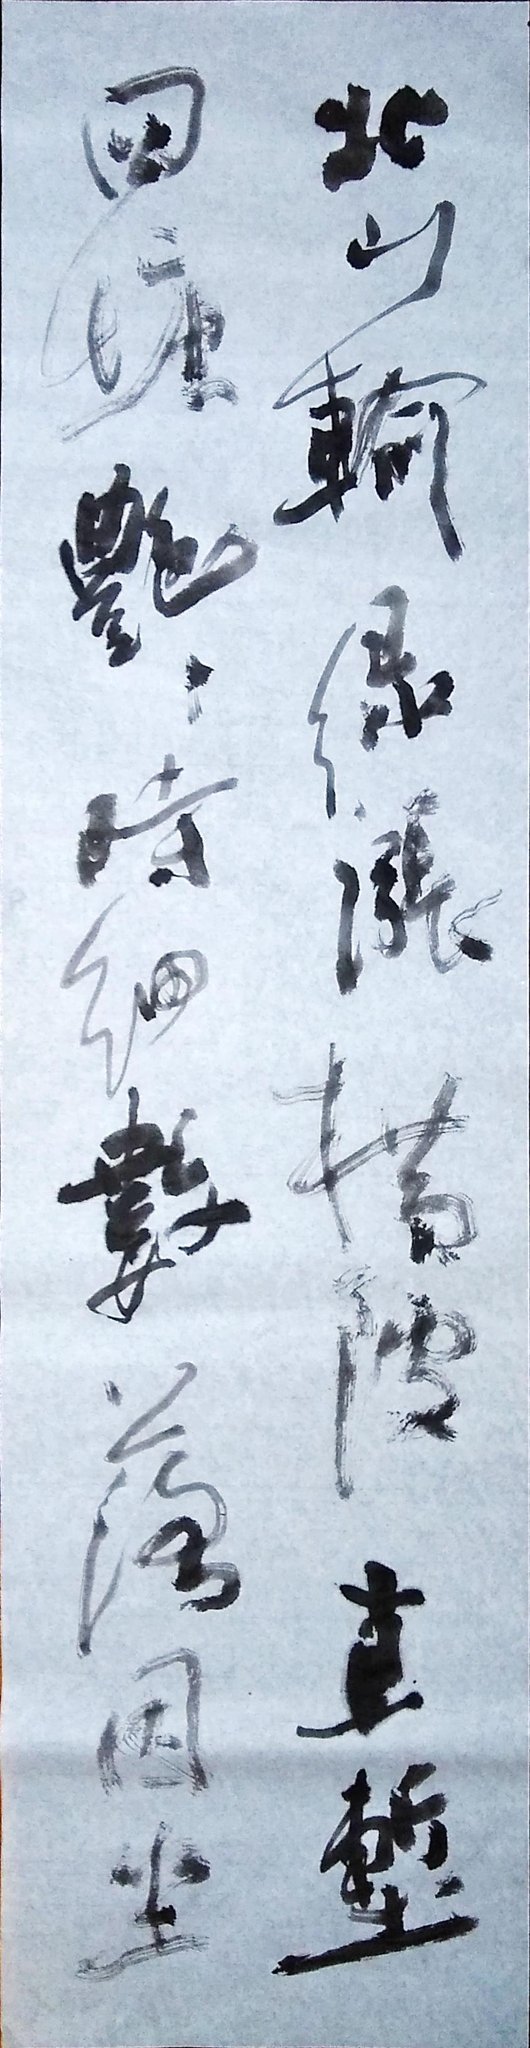 北山輸綠漲橫陂直塹
回塘豔々時細數落因坐